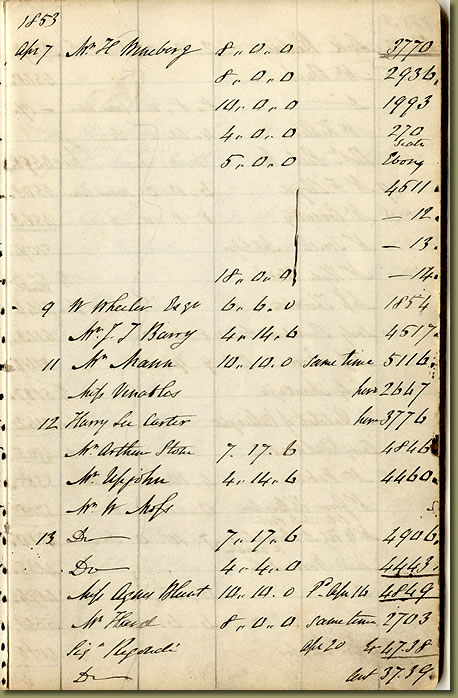 1853
Apr 7 Mr H Wineberg 8 . 0 . 0 3770
8 . 0 . 0 2936
10 . 0 . 0 1993
4 . 0 . 0 270
5 . 0 . 0 Ebony
4511
— 12
— 13
18 . 0 . 0 — 14
9 W Wheeler Esqr 6 . 6 . 0 1854
Mr J J Barry 4 . 14 . 6 4517
11 Mr Mann 10 . 10 . 0 same time 5116
Miss Venables hire 2647
12 Harry Lee Carter hire 3776
Mr Arthur Stone 7 . 17 . 6 4846
Mr Upjohn 4 . 14 . 6 4460
Mr W Moss
13 Do 7 . 17 . 6 4906
Do 4 . 4 . 0 4443
Miss Agnes Blunt 10 . 10 . 0 Pd Apr 16 4849
Mr Hurd 8 . 0 . 0 same time 2703
Sigr Regondi Apr 20 Ex 4738
Do 3739